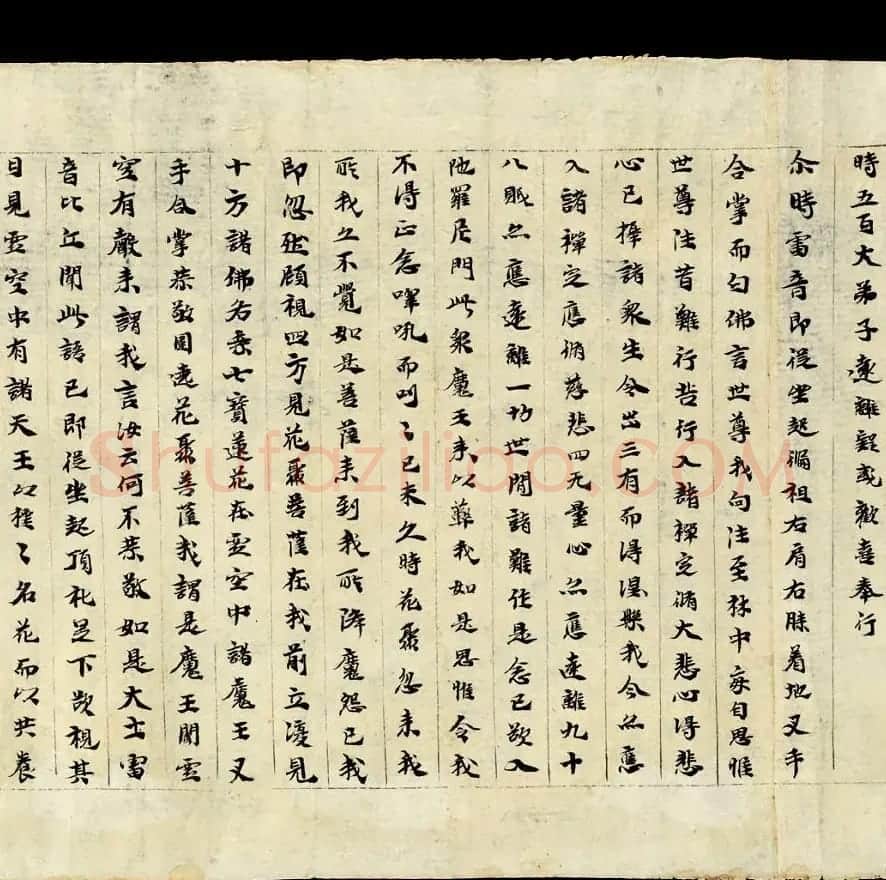 時五百大弟子遠離疑惑歡喜奉行
尒時雷音即從坐起徧袒右肩右膝着地叉手
合掌而白佛言世尊我向往至林中每自思惟
世尊往昔難行苦行入諸禪定脩大悲心得悲
心已擇諸衆生令出三有而得涅槃我今亦應
入諸禪定應脩慈悲四无量心亦應遠離九十
八眠亦應遠離一切世間諸難作是念已欲入
陁羅尼門此衆魔王来以蔽我如是思惟令我
不得正念嗥吼而叫〻已未久時花聚忽来我
所我久不覺如是菩薩来到我所降魔怨已我
即忽然顧視四方見花聚菩薩在我前立復見
十方諸佛各乘七寶蓮花在虛空中諸魔王叉
手合掌恭敬圍遶花聚菩薩我謂是魔王聞虛
空有聲来謂我言汝云何不恭敬如是大士雷
音比丘聞此語已即從坐起頂礼足下欲視其
目見虛空中有諸天王以種〻名花而以共養
Shufaziliao.COM